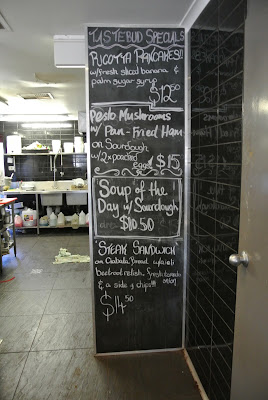 TASTEBUD SPECIALS
RICOTTA PANCAKES!!
w/fresh sliced banana &
palm sugar syrup
$12.50
Pesto Mushrooms
w/ Pan-Fried Ham
on Sourdough
w/2x poached
eggs $15
Soup of the
Day w/ Sourdough
$10.50
"STEAK SANDWICH"
on Ciabatta Bread w/aioli
beetroot relish, fresh tomato
onion
& a side of chips!!!
$14.50